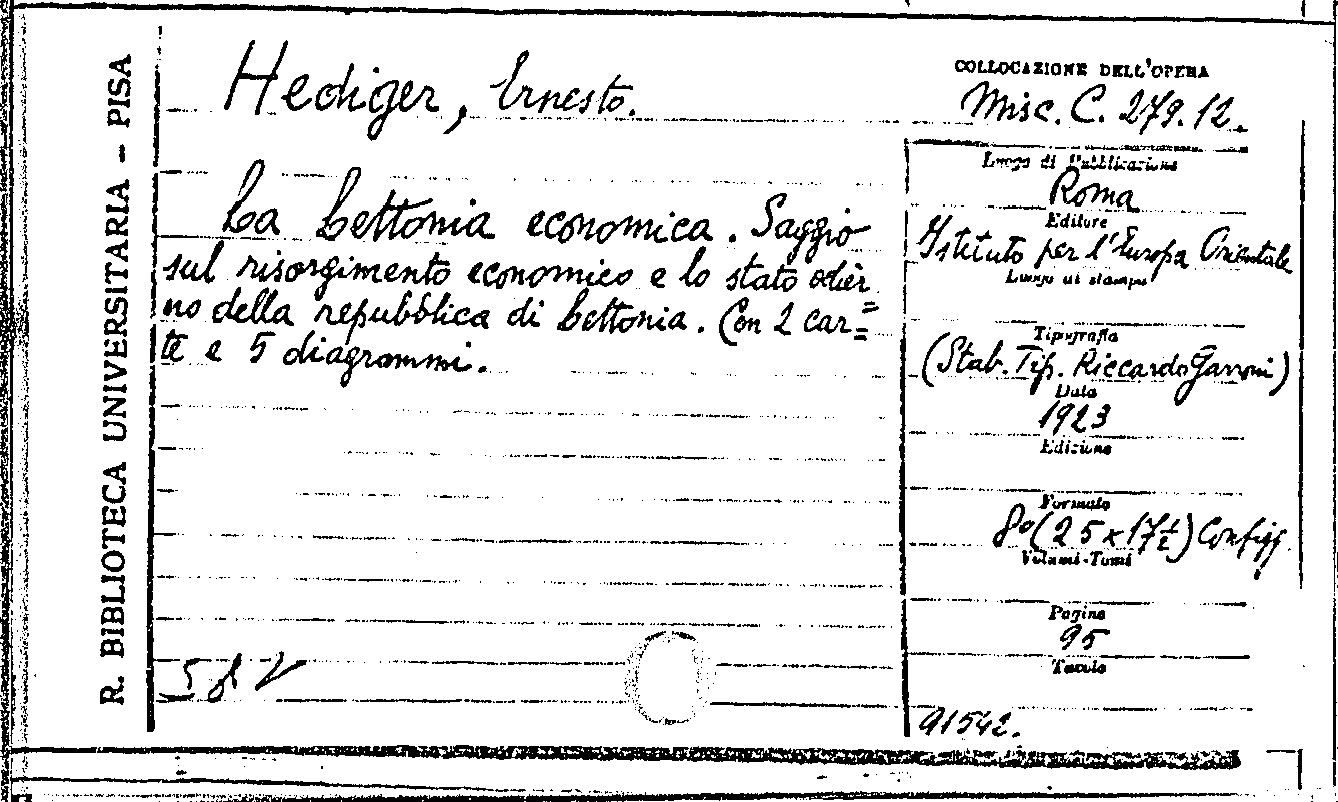 R. BIBLIOTECA UNIVERSITARIA - PISA
Hediger, Ernesto.
La Lettonia economica. Saggio
sul risorgimento economico e lo stato odier=
no della repubblica di Lettonia. Con 2 car=
te e 5 diagrammi.
COLLOCAZIONE DELL'OPERA
Misc. C. 279.12.
Luogo di Pubblicazione
Roma
Editore
Istituto per l'Europa Orientale
Luogo di stampa
Tipografia
(Stab. Tip. Riccardo Garroni)
Data
1923
Edizione
Formato
8°(25x17½) Con figg.
Volumi-Tomi
Pagine
95
Tavole
91542.